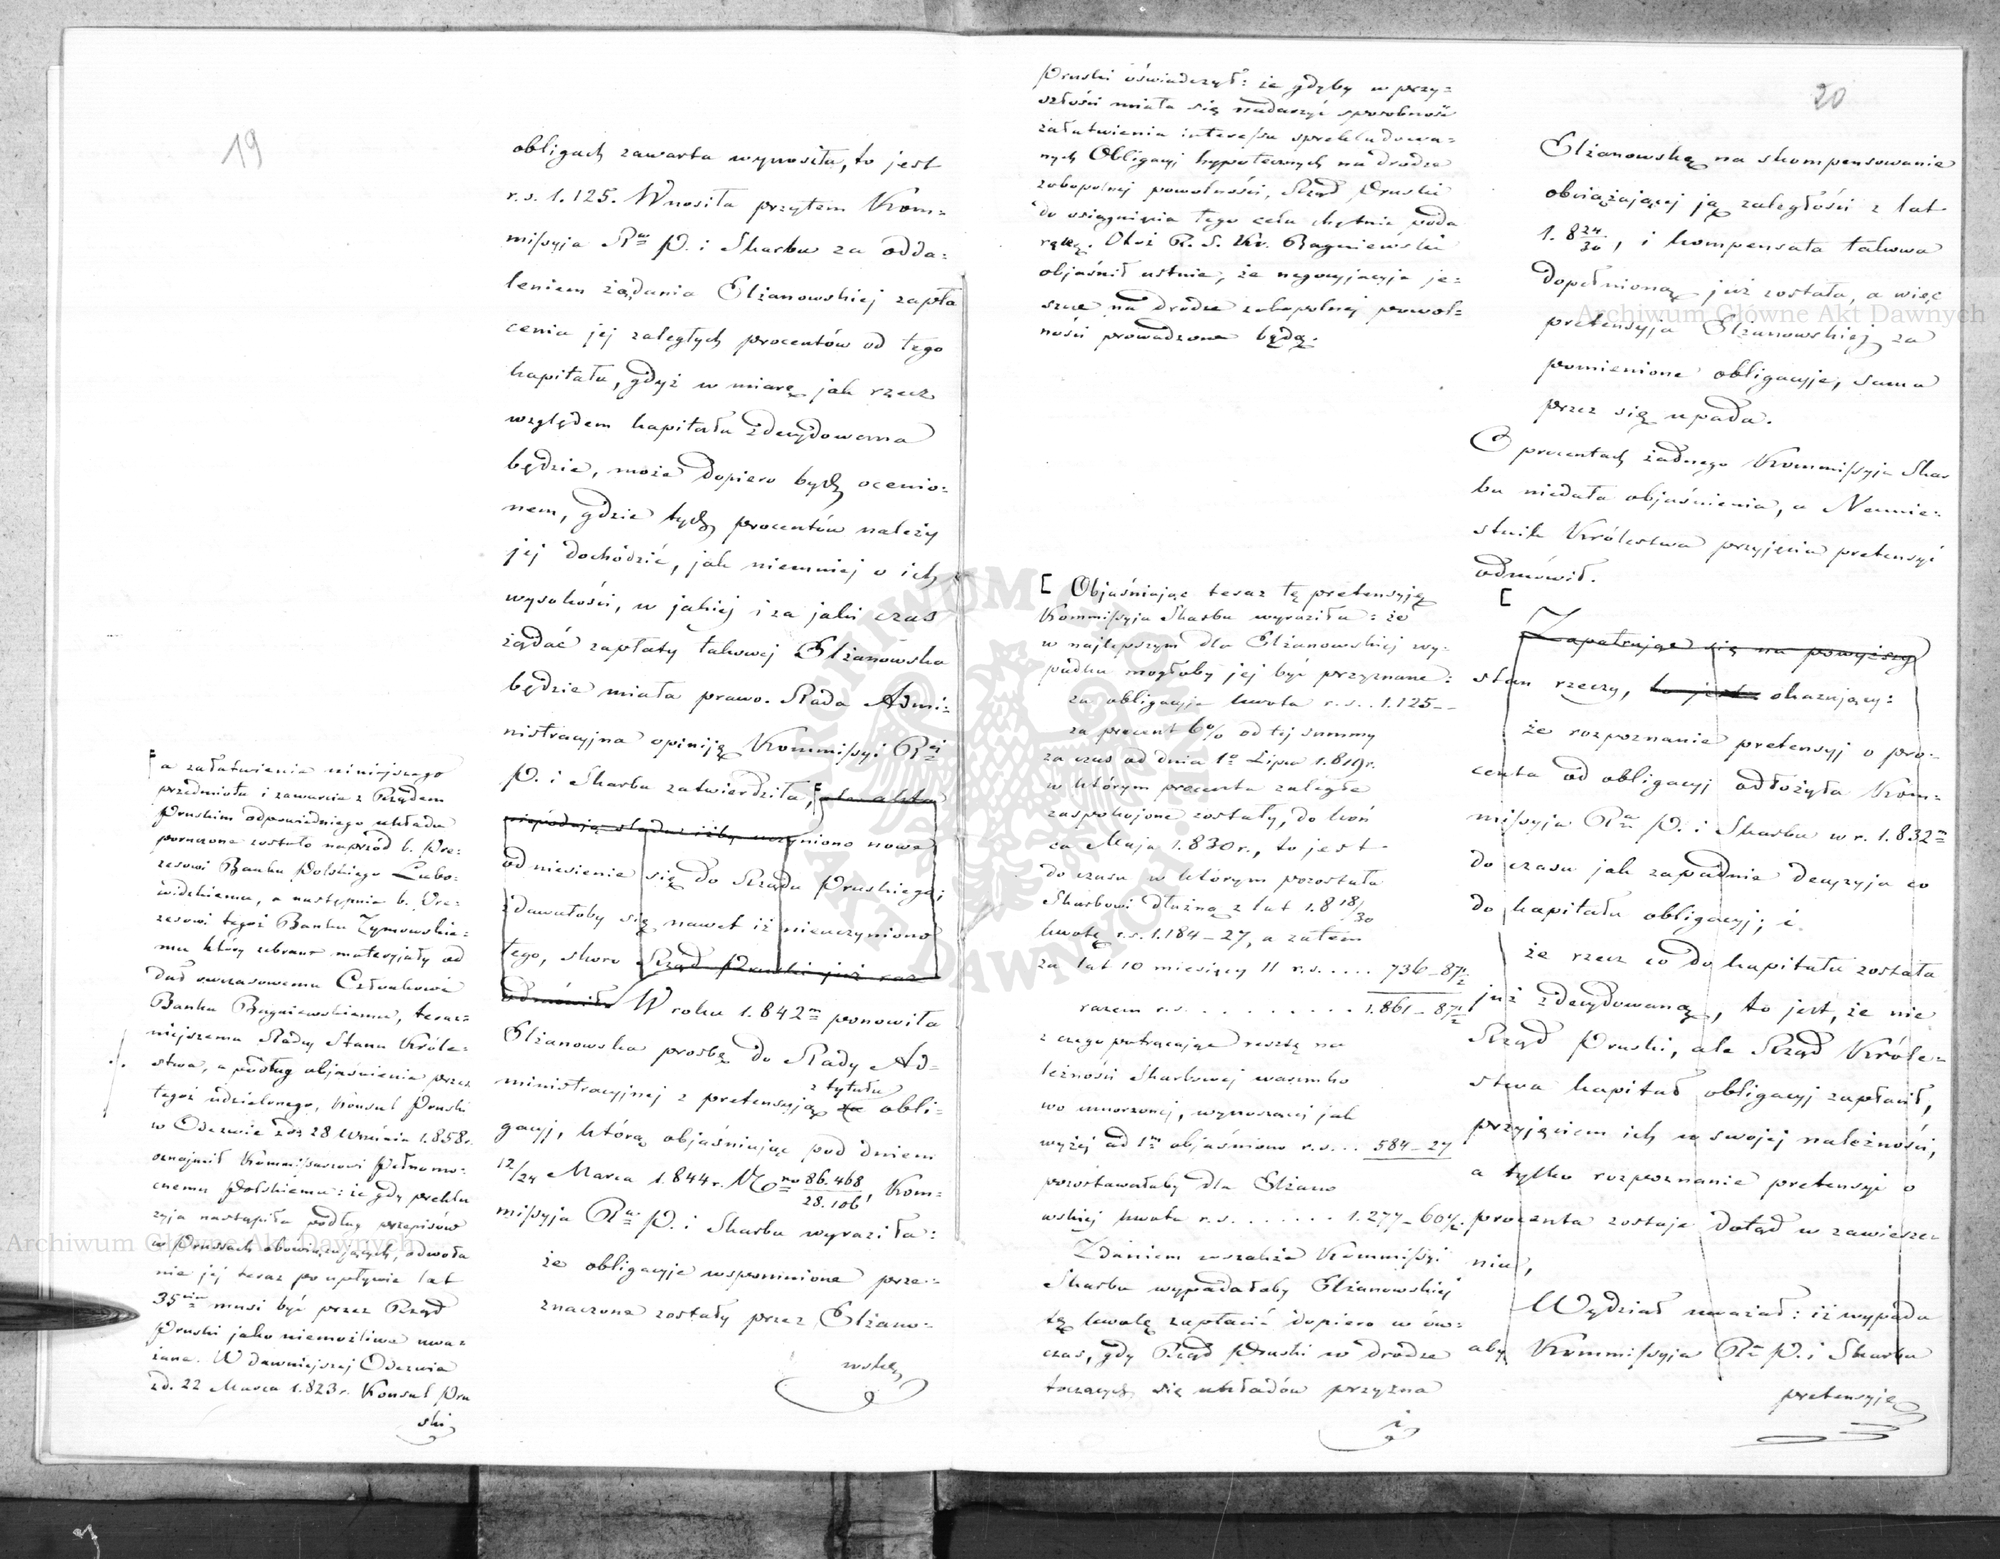 19
obligach zawarta wynosiła, to jest
r.s. 1.125. Wnosiła przytem Kom=
missyja R. P. i Skarbu za odda=
leniem żądania Elżanowskiej zapła
cenia jej zaległych procentów od tego
kapitału, gdyż w miarę jak rzecz
względem kapitału zdecydowana
będzie, może dopiero bydź ocenio=
nem, gdzie tych procentów należy
jej dochodzić, jak niemniej o ich
wysokości, w jakiej i za jaki czas
żądać zapłaty takowej Elżanowska
będzie miała prawo. Rada Admi=
nistracyjna opiniją Kommissyi R.
P. i Skarbu zatwierdziła, ale akta
niepodają śladu iżby uczyniono nowe
odniesienie się do Rządu Pruskiego;
zdawałoby się nawet iż nieuczyniono
tego, skoro Rząd Pruski już raz
odmówił. W roku 1.842 ponowiła
Elżanowska prośbę do Rady Ad=
ministracyjnej z pretensyją za z tytułu obli=
gacyj, którą objaśniając pod dniem
12/24 Marca 1.844 r. No 86.468/28.106, Kom=
missyja R. P. i Skarbu wyraziła:
że obligacyje wspomnione prze=
znaczone zostały przez Elżano=
wską
a załatwienia niniejszego
przedmiotu i zawarcia z Rządem
Pruskim odpowiedniego układu
poruczone zostało naprzód b. Pre=
zesowi Banku Polskiego Lubo=
widzkiemu, a następnie b. Pre=
zesowi tegoż Banku Tymowskie=
mu który zebrane materyjały od
dał owczasowemu Członkowi
Banku Bagniewskiemu, teraz=
niejszemu Radcy Stanu Króle=
stwa, a podług objaśnienia przez
tegoż udzielonego, Konsul Pruski
w Odezwie z d. 28 Września 1.858 r.
oznajmił Kommissarzowi Pełnomo=
cnemu Polskiemu: że gdy preklu
zyja nastąpiła podług przepisów
w Prussach obowiązujących, odwoła
nie jej teraz po upływie lat
35 musi być przez Rząd
Pruski jako niemożliwe uwa=
żane. W dawniejszej Odezwie
z d. 22 Marca 1.823 r. Konsul Pru
ski
Pruski oświadczył: że gdyby w przy=
szłości miała się nadarzyć sposobność
załatwienia interessu sprekludowa=
nych Obligacyj hypotecznych na drodze
zobopolnej powolności, Rząd Pruski
do osiągnięcia tego celu chętnie poda
rękę. Otóż R. S. Kr. Bagniewski
objaśnił ustnie, że negocyjacyja je=
szcze na drodze zobopolnej powol=
ności prowadzona będą.
Objaśniając teraz tę pretensyją
Kommissyja Skarbu wyraziła: że
w najlepszym dla Elżanowskiej wy=
padku mogłoby jej być przyznane:
za obligacyje kwota r.s... 1.125 –
za procent 6% od tej summy
za czas od dnia 1 Lipca 1.819 r.
w którym procenta zaległe
zaspokojone zostały, do koń
ca Maja 1.830 r., to jest
do czasu w którym pozostała
Skarbowi dłużną z lat 1.8 18/30
kwotę r.s. 1.184 – 27, a zatem
za lat 10 miesięcy 11 r.s..... 736 – 87½
razem r.s. .......... 1.861 – 87½
z czego potrącając resztę na
leżności Skarbowej warunko
wo umorzonej, wynoszącej jak
wyżej ad 1 objaśniono r.s... 584 – 27
pozostawałaby dla Elżano
wskiej kwota r.s. ....... 1.277 – 60½
Zdaniem wszakże Kommissyi
Skarbu wypadałoby Elżanowskiej
tę kwotę zapłacić dopiero w ów=
czas, gdy Rząd Pruski w drodze
toczących się układów przyzna
i
20
Elżanowską na skompensowanie
obciążającej ją zaległości z lat
1.8 24/30, i kompensata takowa
dopełnioną już została, a więc
pretensyja Elżanowskiej za
pomienione obligacyje, sama
przez się upada.
O procentach żadnego Kommissyja Skar
bu niedała objaśnienia, a Namie=
stnik Królestwa przyjęcia pretensyi
odmówił.
Zapatrując się na powyższy
stan rzeczy, to jest okazujący:
że rozpoznanie pretensyj o pro=
centa od obligacyj odłożyła Kom=
missyja R. P. i Skarbu w r. 1.832
do czasu jak zapadnie decyzyja co
do kapitału obligacyj; i.
że rzecz co do kapitału została
już zdecydowaną, to jest, że nie
Rząd Pruski, ale Rząd Króle=
stwa kapitał obligacyj zapłacił,
przyjęciem ich w swojej należności,
a tylko rozpoznanie pretensyi o
procenta zostaje dotąd w zawiesze
niu,
Wydział uważał: iż wypada
aby Kommissyja R. P. i Skarbu
pretensyje
Archiwum Główne Akt Dawnych
Archiwum Główne Akt Dawnych
ARCHIWUM GŁÓWNE AKT DAWNYCH